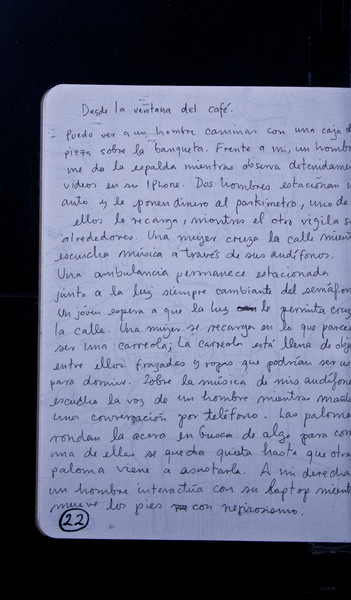 Desde la ventana del café.
Puedo ver a un hombre caminar con una caja d
pizza sobre la banqueta. Frente a mi, un hombr
me da la espalda mientras observa detenidamen
videos en su IPhone. Dos hombres estacionan u
auto y le ponen dinero al parkimetro, uno de
ellos la recarga, mientras el otro vigila s
alrededores. Una mujer cruza la calle mient
escucha música a través de sus audífonos.
Una ambulancia permanece estacionada
junto a la luz siempre cambiante del semáfo
Un joven espera a que la luz le permita cruz
la calle. Una mujer se recarga en lo que parec
ser una carreola; La carreola está llena de obje
entre ellos frazadas y ropas que podrían ser us
para dormir. Sobre la música de mis audífono
escucho la voz de un hombre mientras
una conversación por teléfono. Las paloma
rondan la acera en busca de algo para com
una de ellas se queda quieta hasta que otra
paloma viene a asustarla. A mi derecha
un hombre interactúa con su laptop mient
mueve los pies con nerviosismo.
22